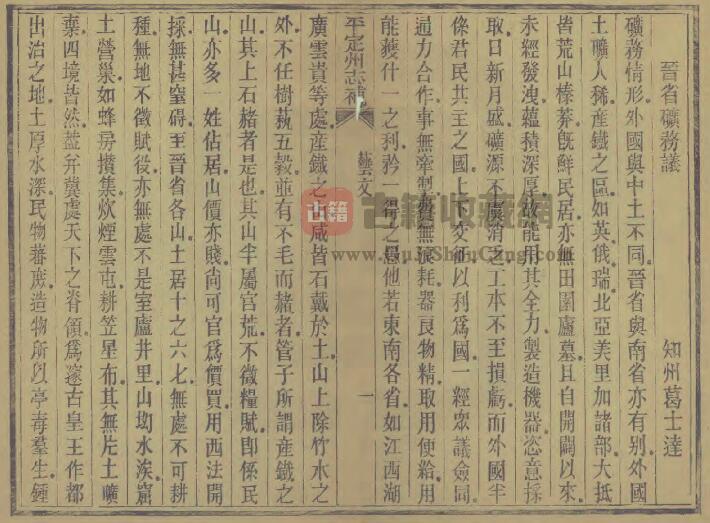 晉省礦務議　知州葛士達
礦務情形外國與中土不同晉省與南省亦有别外國
土礦人稀產鐵之區如英俄瑞北亞美里加諸部大抵
皆荒山榛莽旣鮮民居亦無田園廬墓且自開闢以來
未經發洩蘊積深厚故能用其全力製造機器恣意採
取日新月盛礦源不虞消乏工本不至損虧而外國半
係君民共主之國上下交征以利爲國一經眾議僉同
通力合作事無牽掣費無浪耗器良物精取用便給用
能獲什一之利矜一得之愚他若東南各省如江西湖
平定州志補　藝文　一
廣雲貴等處產鐵之山咸皆石戴於土山上除竹木之
外不任樹蓺五穀並有不毛而赭者管子所謂產鐵之
山其上石赭者是也其山半屬官荒不徵糧賦即係民
山亦多一姓佔居山價亦賤尚可官爲價買用西法開
採無甚窒碍至晉省各山土居十之六七無處不可耕
種無地不徵賦役亦無處不是室廬井里山坳水涘窟
土營巢如蜂房攢集炊煙雲屯耕笠星布其無片土曠
棄四境皆然葢幷冀處天下之脊領爲邃古皇王作都
出治之地土厚水深民物蕃庶造物所以亭毒羣生鍾
古籍
古籍收藏網